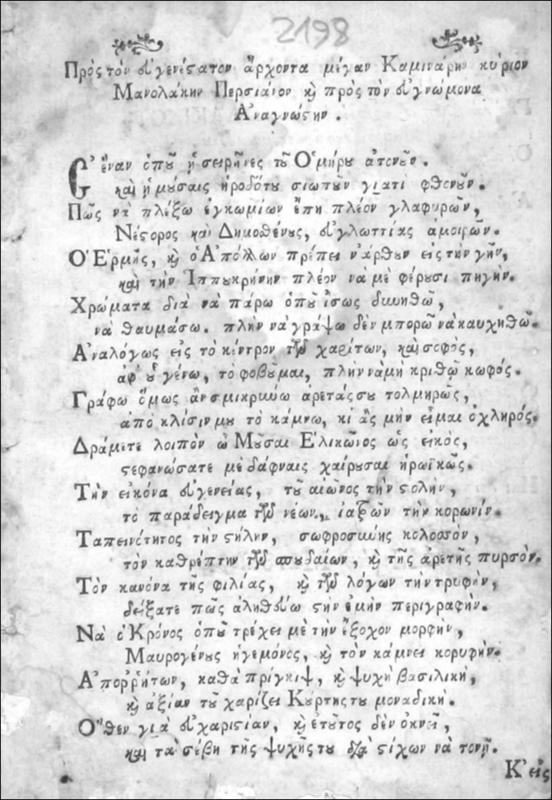 2198
Πρὸς τὸν εὐγενέστατον ἄρχοντα μέγαν Καμινάρην κύριον
Μανολάκην Περσιάνον κ̀ πρὸς τὸν εὐγνώμονα
Ἀναγνώστην.
Ἕναν ὁποῦ ᾑ σειρῆνες τοῦ Ὁμήρου ἀτενοῦν.
καὶ ᾑ μούσαις ἡροδότου σιωποῦν γιατὶ φθονοῦν.
Πῶς νὰ πλέξω ἐγκωμίων ἔπη πλέον γλαφυρῶν,
Νέστορος καὶ Δημοσθένους, εὐγλωττίας ἀμοιρῶν.
Ὁ Ἑρμῆς, κ̀ ὁ Ἀπόλλων πρέπει νἄρθουν εἰς τὴν γῆν,
καὶ τὴν Ἱππουκρήνην πλέον νὰ μὲ φέρουσι πηγήν.
Χρώματα διὰ νὰ πάρω ὁποῦ ἴσως δυνηθῶ,
νὰ θαυμάσω. πλὴν νὰ γράψω δὲν μπορῶ νὰ καυχηθῶ.
Ἀναλόγως εἰς τὸ κέντρον τῶν χαρίτων, καὶ σοφὸς,
ἀφ' οὗ γένω, τὸ φοβοῦμαι, πλὴν νὰ μὴ κριθῶ κωφός.
Γράφω ὅμως ἂν σμικρύνω ἀρετάς σου τολμηρῶς,
ἀπὸ κλίσιν μου τὸ κάμνω, κι ἂς μὴν εἶμαι ὀχληρός.
Δράμετε λοιπὸν ὦ Μοῦσαι Ἑλικῶνος ὡς εἰκὸς,
στεφανώσατε μὲ δάφναις χαίρουσαι ἡρωϊκῶς.
Τὴν εἰκόνα εὐγενείας, τοῦ αἰῶνος τὴν στολὴν,
τὸ παράδειγμα τῶν νέων, ἰατρῶν τὴν κορωνίν.
Ταπεινότητος τὴν στήλην, σωφροσύνης κολοσσὸν,
τὸν καθρέπτην τῶν σπουδαίων, κ̀ τῆς ἀρετῆς πυρσόν.
Τὸν κανόνα τῆς φιλίας, κ̀ τῶν λόγων τὴν τρυφὴν,
δείξατε πῶς ἀληθεύω στὴν ἐμὴν περιγραφήν.
Νὰ ὁ Κρόνος ὁποῦ τρέχει μὲ τὴν ἔξοχον μορφὴν,
Μαυρογένους ἡγεμόνος, κ̀ τὸν κάμνει κορυφήν.
Ἀποῤῥήτων, καθὰ πρίγκιψ, κ̀ ψυχὴ βασιλικὴ,
κ̀ ἀξίαν τοῦ χαρίζει Κούρτης του μοναδική.
Ὅθεν γιὰ εὐχαριστίαν, κ̀ ἐτοῦτος δὲν ὀκνεῖ,
καὶ τὰ σέβη τῆς ψυχῆς του διὰ στίχων νὰ τονῇ.
Κ' εἰς